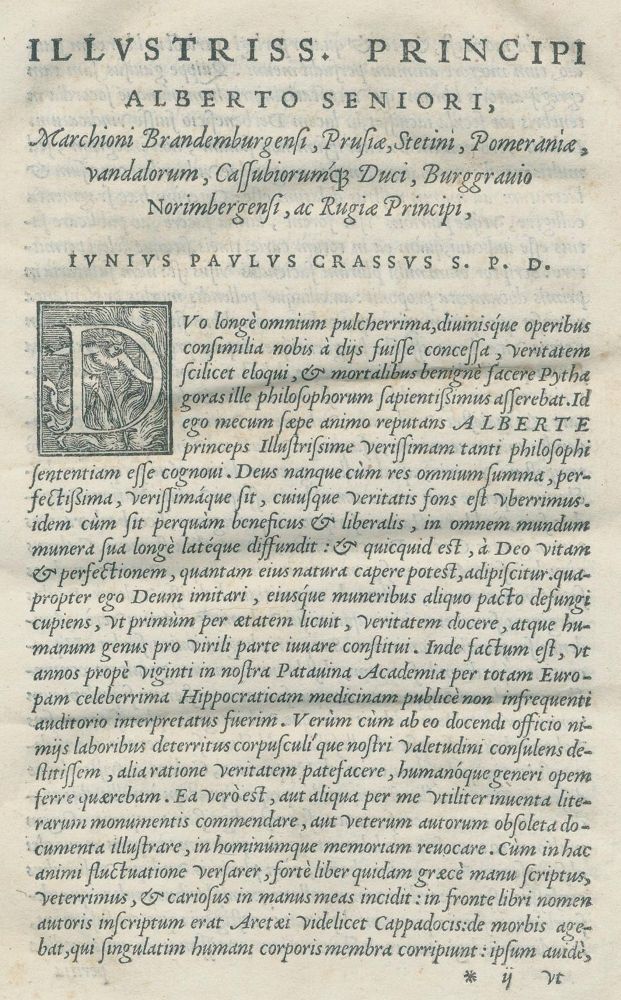 ILLVSTRISS. PRINCIPI
ALBERTO SENIORI,
Marchioni Brandemburgensi, Prusiæ, Stetini, Pomeraniæ,
vandalorum, Cassubiorumq́; Duci, Burggrauio
Norimbergensi, ac Rugiæ Principi,
IVNIVS PAVLVS CRASSVS S. P. D.
DVo longè omnium pulcherrima, diuinisq́ue operibus
consimilia nobis à dijs fuisse concessa, veritatem
scilicet eloqui, & mortalibus benignè facere Pytha
goras ille philosophorum sapientissimus asserebat. Id
ego mecum sæpe animo reputans ALBERTE
princeps Illustrissime verissimam tanti philosophi
sententiam esse cognoui. Deus nanque cùm res omnium summa, per-
fectissima, verissimáque sit, cuiusque veritatis fons est vberrimus.
idem cùm sit perquàm beneficus & liberalis, in omnem mundum
munera sua longè latéque diffundit: & quicquid est, à Deo vitam
& perfectionem, quantam eius natura capere potest, adipiscitur. qua-
propter ego Deum imitari, eiusque muneribus aliquo pacto defungi
cupiens, vt primùm per ætatem licuit, veritatem docere, atque hu-
manum genus pro virili parte iuuare constitui. Inde factum est, vt
annos propè viginti in nostra Patauina Academia per totam Euro-
pam celeberrima Hippocraticam medicinam publicè non infrequenti
auditorio interpretatus fuerim. Verùm cùm ab eo docendi officio ni-
mijs laboribus deterritus corpusculíque nostri valetudini consulens de-
stitissem, alia ratione veritatem patefacere, humanóque generi opem
ferre quærebam. Ea verò est, aut aliqua per me vtiliter inuenta lite-
rarum monumentis commendare, aut veterum autorum obsoleta do-
cumenta illustrare, in hominúmque memoriam reuocare. Cùm in hac
animi fluctuatione versarer, fortè liber quidam græcè manu scriptus,
veterrimus, & cariosus in manus meas incidit: in fronte libri nomen
autoris inscriptum erat Aretæi videlicet Cappadocis: de morbis age-
bat, qui singulatim humani corporis membra corripiunt: ipsum auidè,
* ij vt